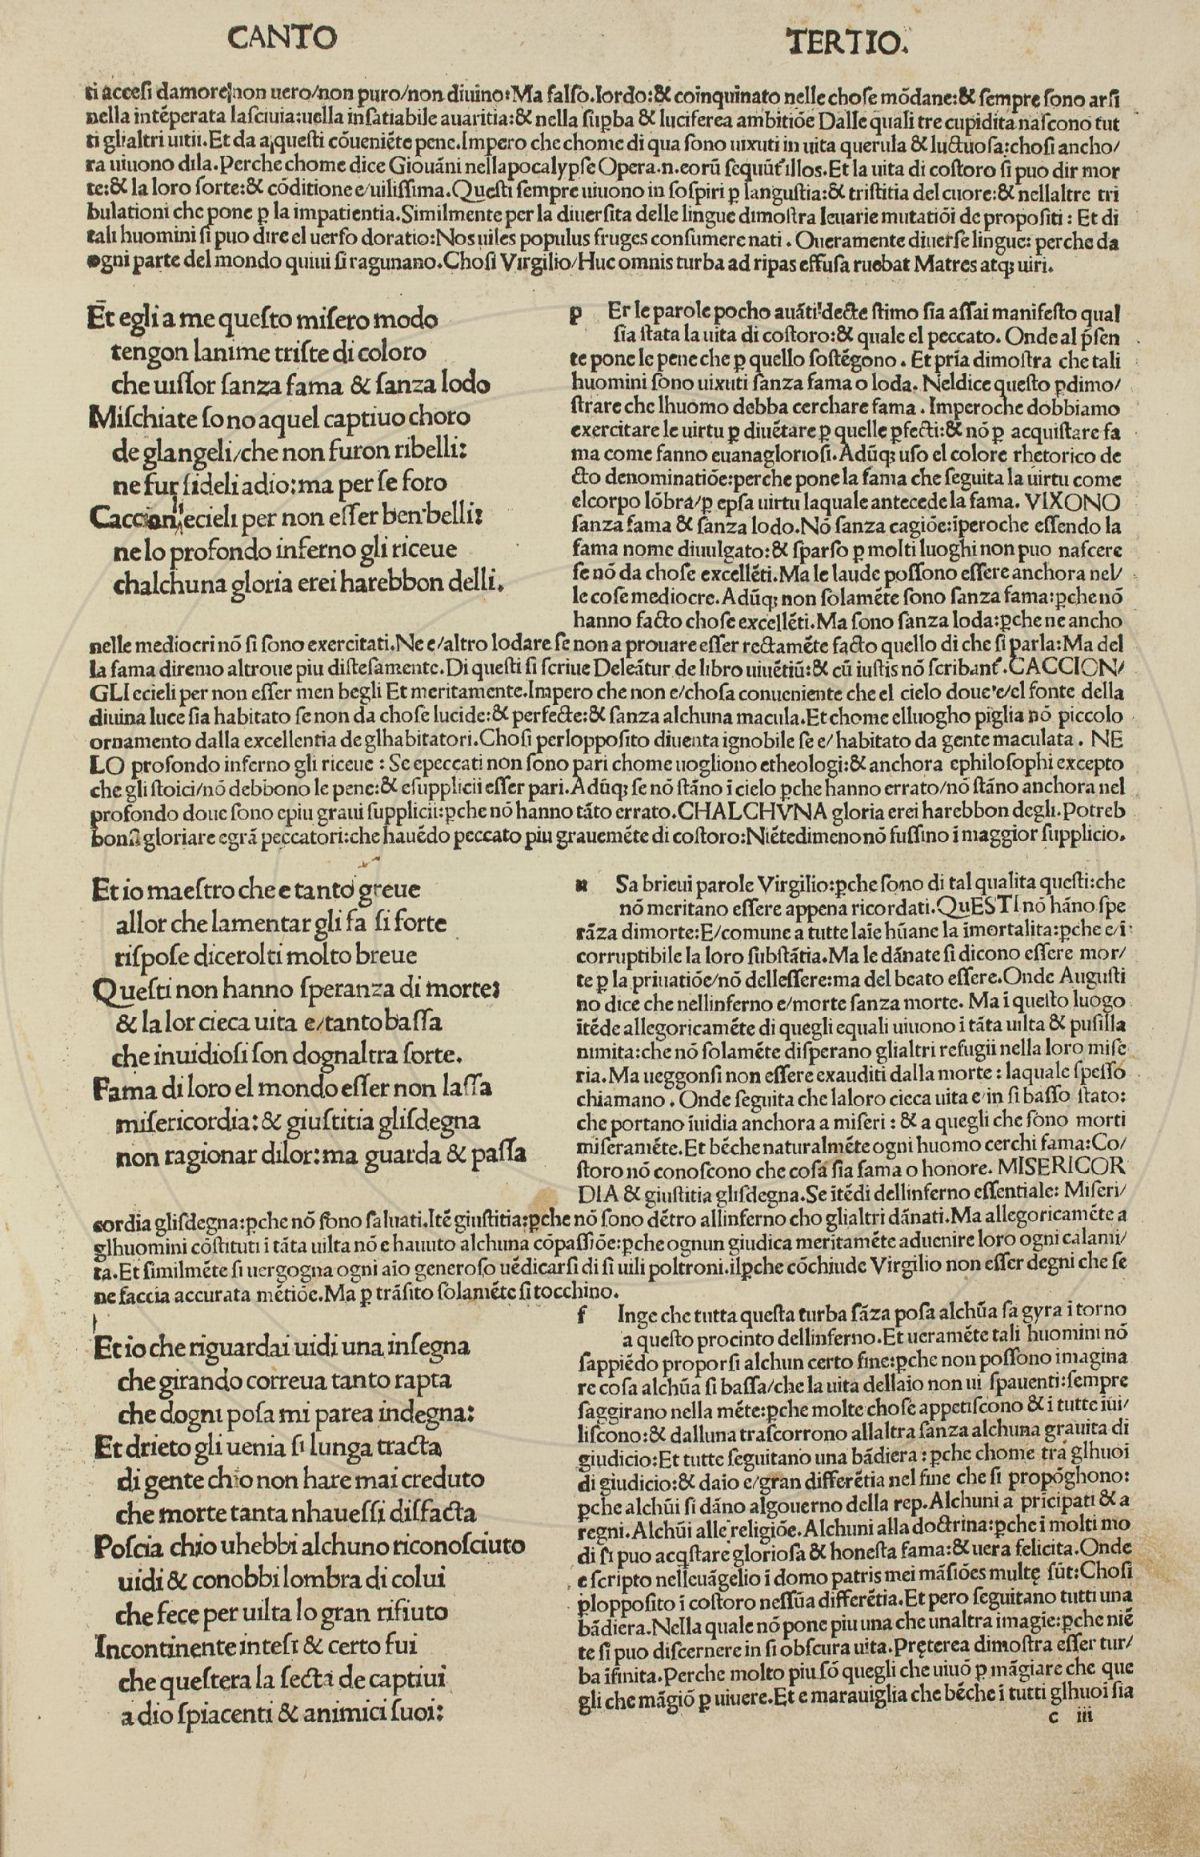 CANTO TERTIO.
ti accesi damore/non uero/non puro/non diuino:Ma falso.lordo:& coinquinato nelle chose mōdane:& sempre sono arsi
nella intēperata lasciuia:nella insatiabile auaritia:& nella suꝑba & luciferea ambitiōe Dalle quali tre cupidita nascono tut
ti glialtri uitii.Et da questi cōueniēte pene.Impero che chome di qua sono uixuti in uita querula & luctuosa:chosi ancho/
ra uiuono dila.Perche chome dice Giouāni nellapocalypse Opera.n.eorū sequūt illos.Et la uita di costoro si puo dir mor
te:& la loro sorte:& cōditione e/uilissima.Questi sempre uiuono in sospiri ꝑ langustia:& tristitia del cuore:& nellaltre tri
bulationi che pone ꝑ la impatientia.Similmente per la diuersita delle lingue dimostra leuarie mutatiōi de propositi : Et di
tali huomini si puo dire el uerso doratio:Nos uiles populus fruges consumere nati . Oueramente diuerse lingue: perche da
ogni parte del mondo quiui si ragunano.Chosi Virgilio/Huc omnis turba ad ripas effusa ruebat Matres atqꝫ uiri.
Et egli a me questo misero modo
tengon lanime triste di coloro
che uissor sanza fama & sanza lodo
Mischiate sono aquel captiuo choro
de glangeli/che non furon ribelli:
ne fur fideli adio:ma per se foro
ecieli per non esser ben belli:
ne lo profondo inferno gli riceue
chalchuna gloria erei harebbon delli.
p Er le parole pocho auāti decte stimo sia assai manifesto qual
sia stata la uita di costoro:& quale el peccato. Onde al p̄sen
te pone le pene che ꝑ quello sostēgono . Et pr̄ia dimostra che tali
huomini sono uixuti sanza fama o loda. Neldice questo ꝑdimo/
strare che lhuomo debba cerchare fama . Imperoche dobbiamo
exercitare le uirtu ꝑ diuētare ꝑ quelle ꝑfecti:& nō ꝑ acquistare fa
ma come fanno euanagloriosi.Adūqꝫ uso el colore rhetorico de
cto denominatiōe:perche pone la fama che seguita la uirtu come
elcorpo lōbra/ꝑ epsa uirtu laquale antecede la fama. VIXONO
sanza fama & sanza lodo.Nō sanza cagiōe:īperoche essendo la
fama nome diuulgato:& sparso ꝑ molti luoghi non puo nascere
se nō da chose excellēti.Ma le laude possono essere anchora nel/
le cose mediocre.Adūqꝫ non solamēte sono sanza fama:ꝑche nō
hanno facto chose excellēti.Ma sono sanza loda:ꝑche ne ancho
nelle mediocri nō si sono exercitati.Ne e/altro lodare se non a prouare esser rectamēte facto quello di che si parla:Ma del
la fama diremo altroue piu distesamente.Di questi si scriue Deleātur de libro uiuētiū:& cū iustis nō scribant̄.CACCION/
GLI ecieli per non esser men begli Et meritamente.Impero che non e/chosa conueniente che el cielo doue e/el fonte della
diuina luce sia habitato se non da chose lucide:& perfecte:& sanza alchuna macula.Et chome elluogho piglia nō piccolo
ornamento dalla excellentia de glhabitatori.Chosi perlopposito diuenta ignobile se e/habitato da gente maculata . NE
LO profondo inferno gli riceue : Se epeccati non sono pari chome uogliono etheologi:& anchora ephilosophi excepto
che gli stoici/nō debbono le pene:& esupplicii esser pari.Adūqꝫ se nō stāno ī cielo ꝑche hanno errato/nō stāno anchora nel
profondo doue sono epiu graui supplicii:ꝑche nō hanno tāto errato.CHALCHVNA gloria erei harebbon degli.Potreb
bono gloriare egrā peccatori:che hauēdo peccato piu grauemēte di costoro:Niētedimeno nō fussino ī maggior supplicio.
Et io maestro che e tanto greue
allor che lamentar gli fa si forte
rispose dicerolti molto breue
Questi non hanno speranza di morte:
& la lor cieca uita e/tanto bassa
che inuidiosi son dognaltra sorte.
Fama di loro el mondo esser non lassa
misericordia:& giustitia glisdegna
non ragionar dilor:ma guarda & passa
u Sa brieui parole Virgilio:ꝑche sono di tal qualita questi:che
nō meritano essere appena ricordati.QuESTI nō hāno spe
rāza dimorte:E/comune a tutte laīe hūane la īmortalita:ꝑche e/ī
corruptibile la loro substātia. Ma le dānate si dicono essere mor/
te ꝑ la priuatiōe/nō dellessere:ma del beato essere.Onde Augusti
no dice che nellinferno e/morte sanza morte. Ma ī questo luogo
ītēde allegoricamēte di quegli equali uiuono ī tāta uilta & pusilla
nimita:che nō solamēte disperano glialtri refugii nella loro mise
ria.Ma ueggonsi non essere exauditi dalla morte : laquale spesso
chiamano . Onde seguita che laloro cieca uita e in si basso stato:
che portano īuidia anchora a miseri : & a quegli che sono morti
miseramēte.Et bēche naturalmēte ogni huomo cerchi fama:Co/
storo nō conoscono che cosa sia fama o honore. MISERICOR
DIA & giustitia glisdegna.Se ītēdi dellinferno essentiale: Miseri/
cordia glisdegna:ꝑche nō sono saluati.Itē giustitia:ꝑche nō sono dētro allinferno cho glialtri dānati.Ma allegoricamēte a
glhuomini cōstituti ī tāta uilta nō e hauuto alchuna cōpassiōe:ꝑche ognun giudica meritamēte aduenire loro ogni calami/
ta.Et similmēte si uergogna ogni aīo generoso uēdicarsi di si uili poltroni.ilꝑche cōchiude Virgilio non esser degni che se
ne faccia accurata mētiōe.Ma ꝑ trāsito solamēte si tocchino.
Et io che riguardai uidi una insegna
che girando correua tanto rapta
che dogni posa mi parea indegna:
Et drieto gli uenia si lunga tracta
di gente chio non hare mai creduto
che morte tanta nhauessi disfacta
Poscia chio uhebbi alchuno riconosciuto
uidi & conobbi lombra di colui
che fece per uilta lo gran rifiuto
Incontinente intesi & certo fui
che questera la secta de captiui
a dio spiacenti & animici suoi:
f Inge che tutta questa turba sāza posa alchūa sa gyra ī torno
a questo procinto dellinferno.Et ueramēte tali huomini nō
sappiēdo proporsi alchun certo fine:ꝑche non possono imagina
re cosa alchūa si bassa/che la uita dellaīo non ui spauenti:sempre
saggirano nella mēte:ꝑche molte chose appetiscono & ī tutte īui/
liscono:& dalluna trascorrono allaltra sanza alchuna grauita di
giudicio:Et tutte seguitano una bādiera : ꝑche chome tra glhuoī
di giudicio:& daīo e/gran differētia nel fine che si propōghono:
ꝑche alchūi si dāno algouerno della rep.Alchuni a pricipati & a
regni.Alchūi alle religiōe.Alchuni alla doctrina:ꝑche ī molti mo
di si puo acq̄stare gloriosa & honesta fama:& uera felicita.Onde
e scripto nelleuāgelio ī domo patris mei māsiōes multę sūt:Chosi
ꝑlopposito ī costoro nessūa differētia.Et pero seguitano tutti una
bādiera.Nella quale nō pone piu una che unaltra imagīe:ꝑche niē
te si puo discernere in si obscura uita.Pręterea dimostra esser tur/
ba īfinita.Perche molto piu sō quegli che uiuō ꝑ māgiare che que
gli che māgiō ꝑ uiuere.Et e marauiglia che bēche ī tutti glhuoī sia
c iii